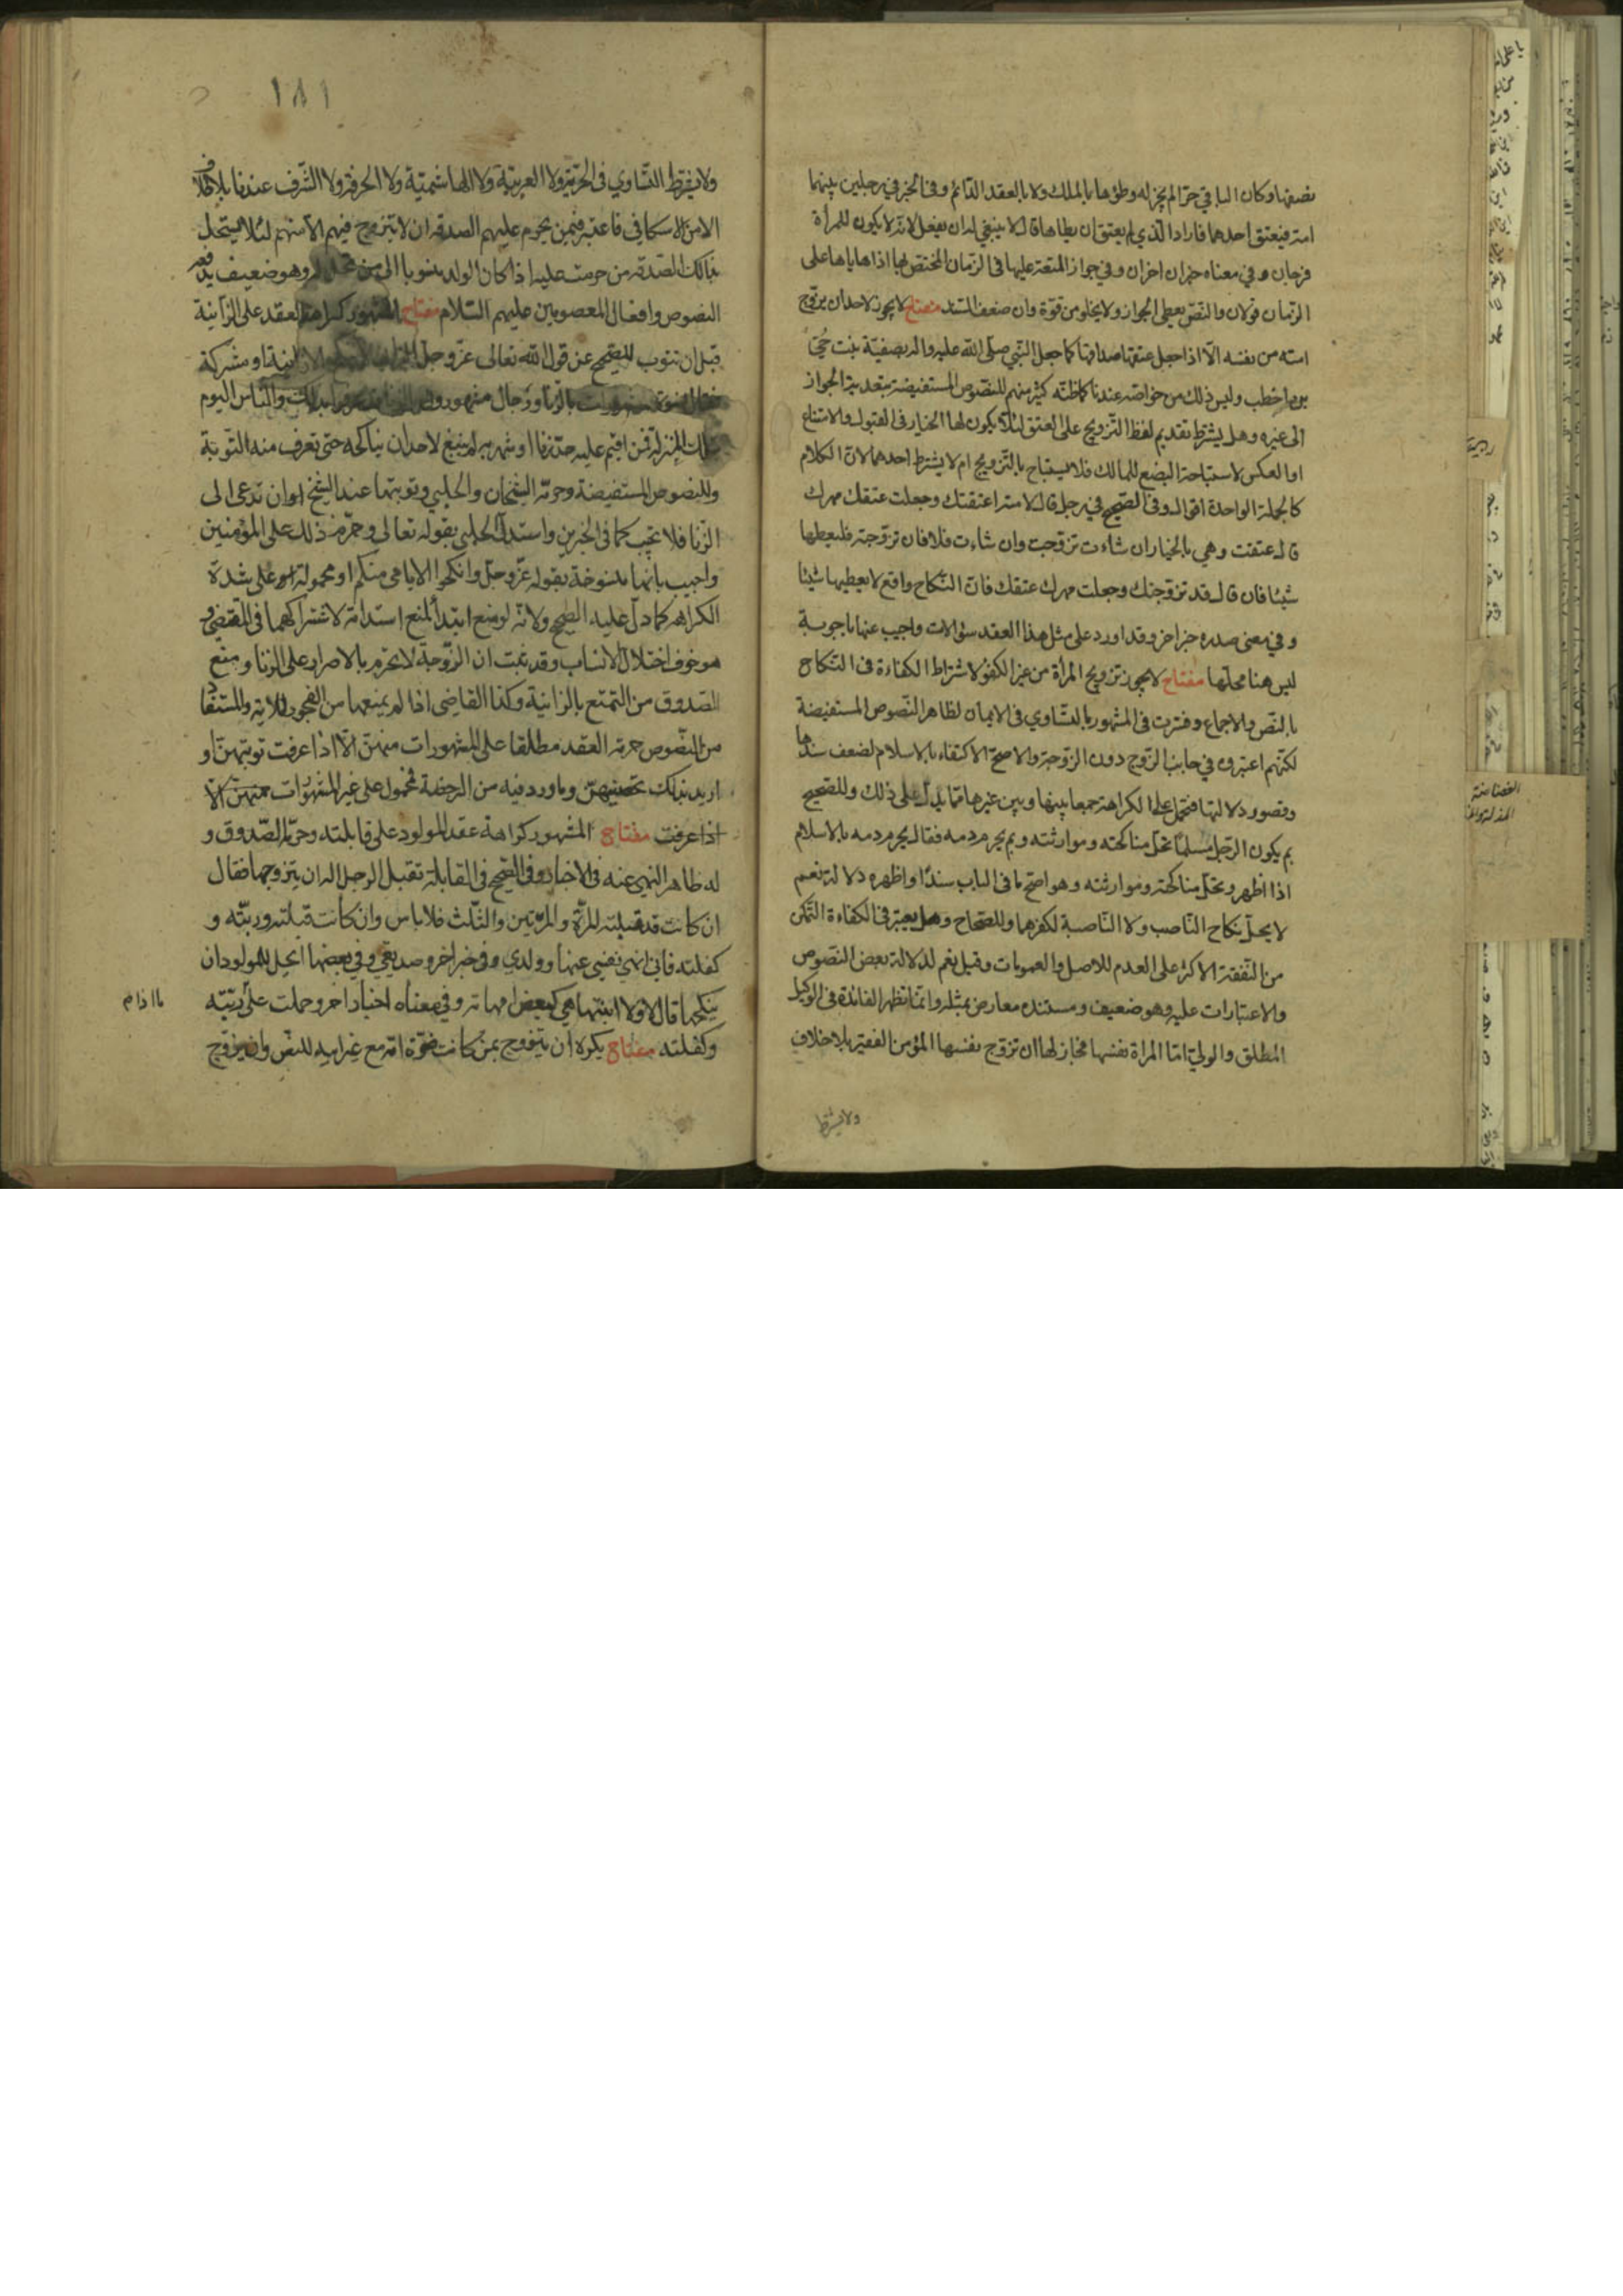 نصفها وكان الباقي حرّا لم يجز له وطؤها بالملك ولا بالعقد الدّائم وفي الخبر في رجلين بينهما
امة فيعتق احدهما فاراد الذي لم يعتق ان يطاها قال لا ينبغي له ان يفعل لانّه لا يكون للمرأة
فرجان وفي معناه خبران اخران وفي جواز المتعة عليها في الزمان المختصّ بها اذا هاياها على
الزّمان قولان والنّصّ يعطى الجواز ولا يخلو من قوّة وان ضعف السّند مفتاح لا يجوز لاحد ان يزوّج
امته من نفسه الّا اذا جعل عتقها صداقها كما جعل النّبي صلّى اللّه عليه واله بصفيّة بنت حُيّ
بن اخطب وليس ذلك من خواصّه عندنا كما ظنّه كثير منهم للنّصوص المستفيضة بتعدية الجواز
الى غيره وهل يشترط تقديم لفظ التّزويج على العتق لئلّا يكون لها الخيار في القبول والامتناع
او العكس لاستباحة البضع للمالك فلا يستباح بالتّزويج ام لا يشترط احدهما لانّ الكلام
كالجملة الواحدة اقوال وفي الصّحيح في رجل قال لامته اعتقتك وجعلت عتقك مهرك
قال عتقت وهي بالخيار ان شاءت تزوّجت وان شاءت فلا فان تزوّجته فليعطها
شيئا فان قال قد تزوّجتك وجعلت مهرك عتقك فانّ النّكاح واقع لا يعطيها شيئا
وفي معنى صدره خبر اخر وقد اورد على مثل هذا العقد سؤالات واجيب عنها باجوبة
ليس هنا محلّها مفتاح لا يجوز تزويج المرأة من غير الكفو لاشتراط الكفاءة في النّكاح
بالنّصّ والاجماع وفسّرت في المشهور بالتّساوي في الايمان لظاهر النّصوص المستفيضة
لكنّهم اعتبروه في جانب الزّوج دون الزّوجة والاصحّ الاكتفاء بالاسلام لضعف سندها
وقصور دلالتها فتحمل على الكراهة جمعا بينها وبين غيرها ممّا يدلّ على ذلك وللصّحيح
بم يكون الرّجل مسلما تحلّ مناكحته وموارثته وبم يحرم دمه فقال يحرم دمه بالاسلام
اذا اظهر وتحلّ مناكحته وموارثته وهو اصحّ ما في الباب سندا واظهره دلالة نعم
لا يحلّ نكاح النّاصب ولا النّاصبة لكفرهما وللصّحاح وهل يعتبر في الكفاءة التّمكّن
من النّفقة الاكثر على العدم للاصل والعمومات وقيل نعم لدلالة بعض النّصوص
والاعتبارات عليه وهو ضعيف ومستنده معارض بمثله وانّما تظهر الفائدة في الوكيل
المطلق والوليّ امّا المراة نفسها فجاز لها ان تزوّج نفسها المؤمن الفقير بلا خلاف
ولا يشترط
١٨١
ولا يشترط التّساوي في الحرّيّة ولا العربيّة ولا الهاشميّة ولا الحرفة ولا الشّرف عندنا بلا خلاف
الا من الاسكافي فاعتبر فيمن يحرم عليهم الصدقة ان لا يتزوّج فيهم الّا منهم لئلا يستحلّ
بذلك الصّدقة من حرمت عليه اذا كان الولد منسوبا الى من تحلّ له وهو ضعيف يدفعه
النصوص وافعال المعصومين عليهم السّلام مفتاح المشهور كراهة العقد على الزّانية
قبل ان تتوب للصّحيح عن قول اللّه تعالى عزّ وجلّ الزّاني لا ينكح الّا زانية او مشركة
بالزّنا ورجال مشهورون بذلك والنّاس اليوم
بتلك المنزلة فمن اقيم عليه حدّ زنا او شهر به لم ينبغ لاحد ان يناكحه حتى تعرف منه التّوبة
وللنصوص المستفيضة وحرّمه الشّيخان والحلبي وتوبتها عند الشّيخ ان تدعى الى
الزّنا فلا تجيب كما في الخبرين واستدلّ الحلبي بقوله تعالى وحرّم ذلك على المؤمنين
واجيب بانّها منسوخة بقوله عزّ وجلّ وانكحوا الايامى منكم او محمولة على شدّة
الكراهة كما دلّ عليه الصّحيح ولانّه لو منع ابتداً لمنع استدامة لاشتراكهما في المقتضى و
هو خوف اختلال الانساب وقد ثبت ان الزّوجة لا تحرم بالاصرار على الزنا ومنع
الصّدوق من التّمتع بالزانية وكذا القاضي اذا لم يمنعها من الفجور للاية والمستفاد
من النّصوص حرمة العقد مطلقا على المشهورات منهنّ الّا اذا عرفت توبتهنّ او
اريد بذلك تحصينهنّ وما ورد فيه من الرخصة فمحمول على غير المشهورات منهنّ الّا
اذا عرفت مفتاح المشهور كراهة عقد المولود على قابلته وحرّمه الصّدوق و
له ظاهر النّهى عنه في الاخبار وفي الصّحيح في القابلة تقبل الرجل اله ان يتزوجها فقال
ان كانت قد قبلته المرّة والمرّتين والثّلث فلا باس وان كانت قبلته وربّته و
كفلته فانّي انهى نفسي عنها وولدي وفي خبر اخر وصديقي وفي بعضها ايحلّ للمولود ان
ينكحها قال لا ولا ابنتها هي كبعض امهاته وفي معناه اخبار اخر وحملت على ربّته
وكفلته مفتاح يكره ان يتزوج بمن كانت ضرّة امّه مع غير ابيه للنصّ وان يزوّج